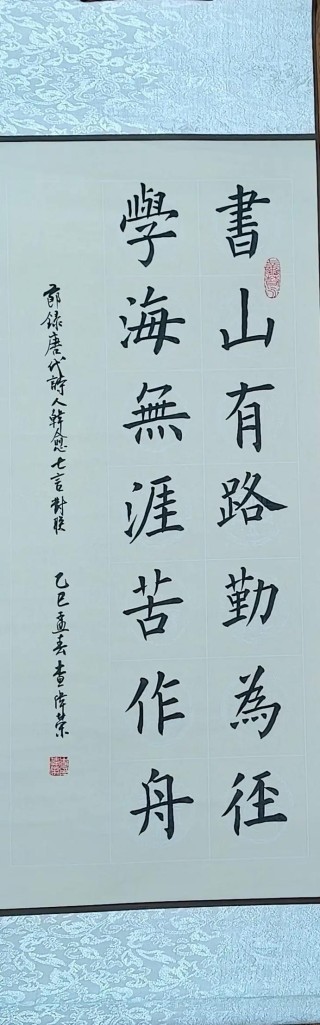 書山有路勤為徑
學海無涯苦作舟
節錄唐代詩人韓愈七言對联
乙巳孟春查偉榮